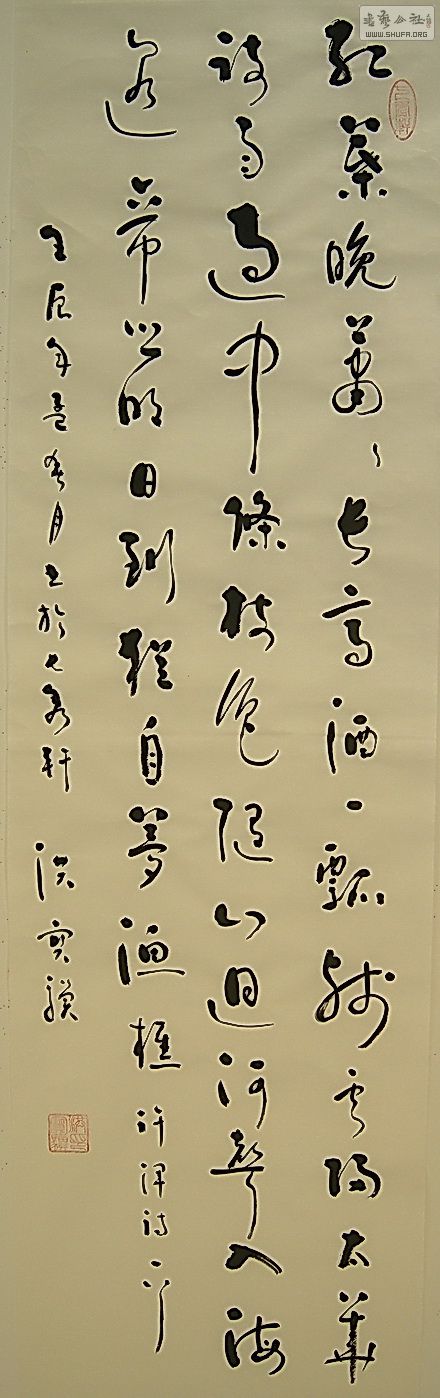 書藝公社
WWW.SHUFA.ORG
紅葉晚蕭〻長亭酒一瓢殘雲歸太華
疏雨過中條樹色隨山迥河聲入海
遙帝鄉明日到猶自夢漁樵 許渾詩一首
壬辰年孟春月書於七軒 洪